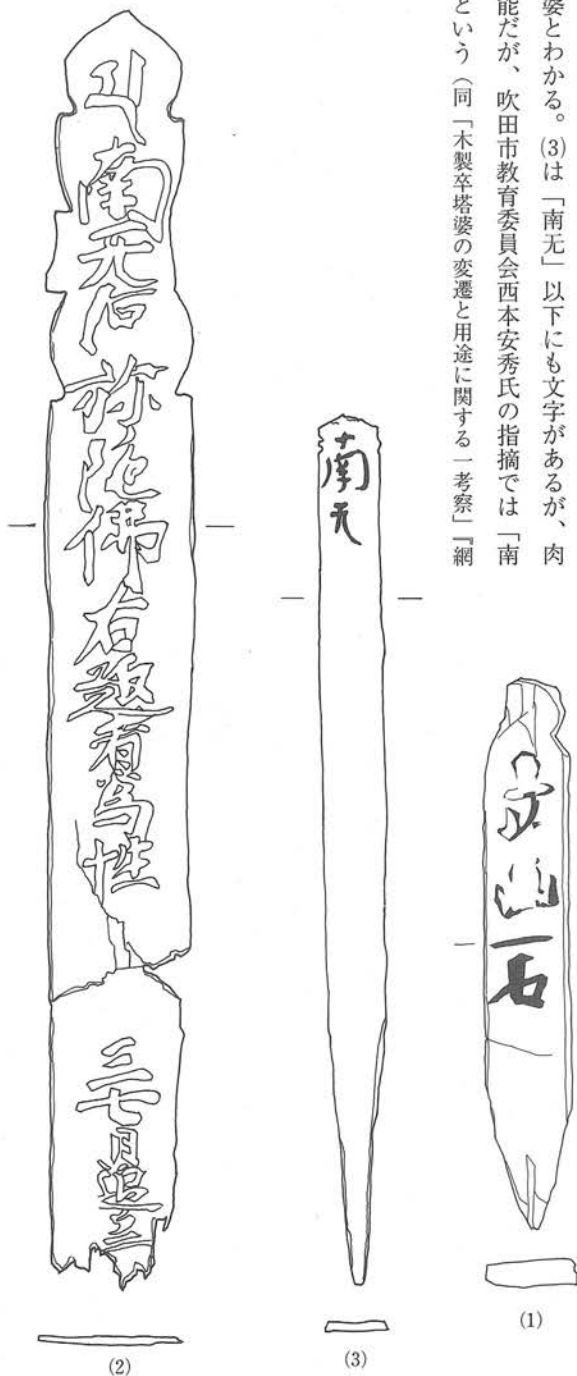 婆とわかる。⑶は「南无」以下にも文字があるが、肉
能だが、吹田市教育委員会西本安秀氏の指摘では「南
という(同「木製卒塔婆の変遷と用途に関する一考察」『網
一石
(1)
南无
(3)
南无阿弥陀佛右趣者為性
三七日追
(2)